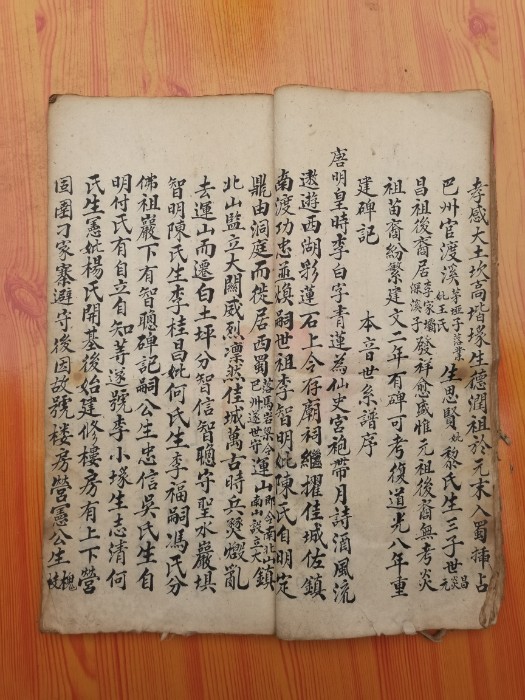 孝感大土坎高堦塜生德潤祖於元末入蜀插占
巴州官渡溪茅垭子落業妣王氏生思賢妣黎氏生三子世昌炎元
昌祖後裔居李家壩保溪子發祥愈盛惟元祖後裔無考炎
祖苗裔紛繁建文二年有碑可考復道光八年重
建碑記
本音世系譜序
唐明皇時李白字青蓮為仙史宮袍帶月詩酒風流
遨遊西湖彩蓮石上今存廟祠繼擢佳城佐鎮
南渡功忠並煥嗣世祖李智明妣陳氏自明定
鼎由洞庭而徙居西蜀巴州遂世守運山即今南北山南山設立大鎮
北山監立大關威烈凛然佳城萬古時兵燹燬亂
去運山而遷白土坪分智信智聰守聖水巖填
智明陳氏生李桂昌妣何氏生李福嗣馮氏分
佛祖巖下有智聰碑記嗣公生忠信吳氏生自
明付氏有自立自知等遂號李小塜生志清何
氏生憲妣楊氏開基後始建修樓房有上下營
固圉刁家寨避守後因故號楼房營憲公生槐